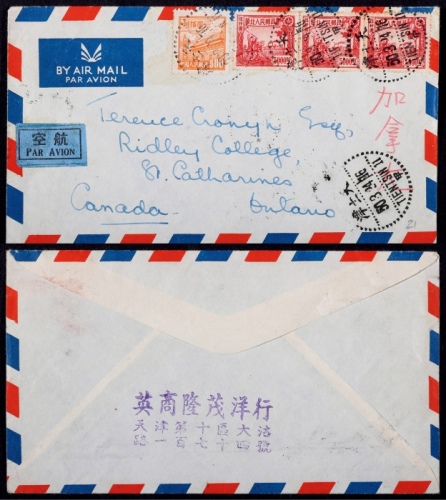 BY AIR MAIL
PAR AVION
空航
PAR AVION
加拿大
Terence Cronyn Esq,
Ridley College,
St. Catharines
Canada Ontario
50 3 24 16
TIENTSIN 11
英商隆茂洋行
天津第十區大沽
路一百七十四號